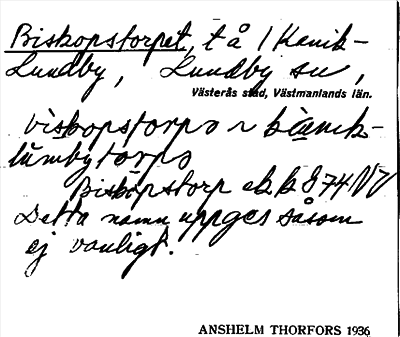 Biskopstorpet, t å 1 Kanik-
Lundby, Lundby sn,
Västerås stad, Västmanlands län.
biskopstorpo ~ kanik-
lumbytorpo
Biskopstorp ek. k 874 NV
Detta namn uppges såsom
ej vanligt.
ANSHELM THORFORS 1936